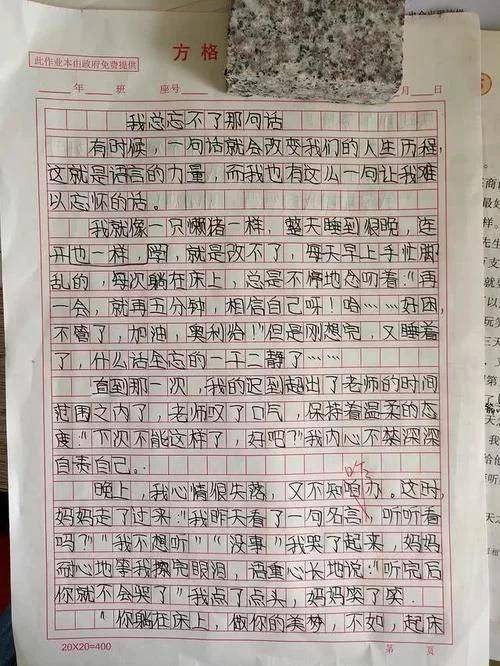 此作业本由政府免费提供
方格
年 班 座号 月 日
我总忘不了那句话
有时候，一句话就会改变我们的人生历程，
这就是语言的力量，而我也有这么一句让我难
以忘怀的话。
我就像一只懒猪一样，整天睡到很晚，连
开也一样，学，就是改不了，每天早上手忙脚
乱的，每次躺在床上，总是不停地念叨着："再
一会，就再五分钟，相信自己呀！哈……好困，
不管了，加油，奥利给！"但是刚想完，又睡着
了，什么话全忘的一干二静了……
直到那一次，我的迟到超出了老师的时间
范围之内了，老师叹了口气，保持着温柔的态
度："下次不能这样了，好吧？"我内心不禁深深
自责自己。
晚上，我心情很失落，又不知咱办。这时，
妈妈走了过来："我昨天看了一句名言，听听看
吗？""我不想听""没事"我哭了起来，妈妈
耐心地等我擦完眼泪，语重心长地说："听完后
你就不会哭了"我点了点头，妈妈笑了笑。
"你躺在床上，做你的美梦，不如，起床
20×20=400
第 页